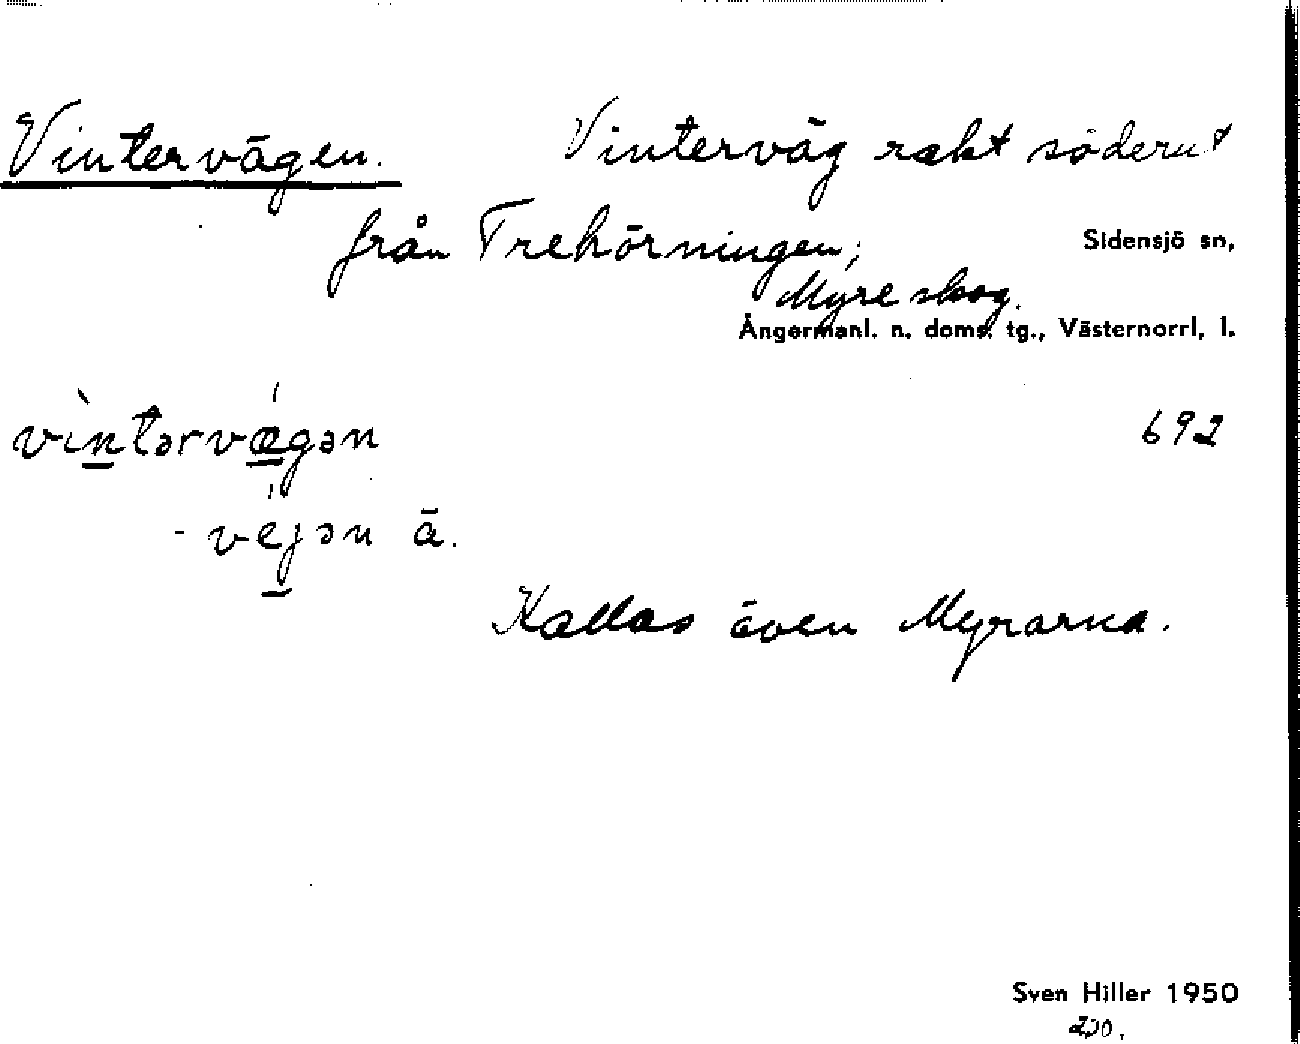 Vintervägen. Vinterväg rakt söderut
från Trehörningen; Sidensjö sn,
Myreskog.
Ångermanl. n. doms. tg., Västernorrl, l.
vìntərvǽgən 692
- véjən ä.
Kallas även Myrarna.
Sven Hiller 1950